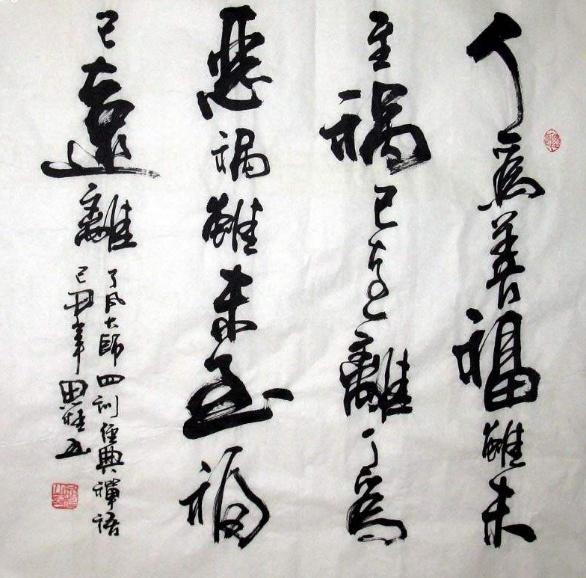 人為善福雖未
至禍已遠離人為
惡禍雖未至福
已遠離
了凡大師四訓經典禪語
己丑年